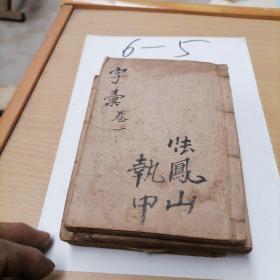 6-5
字彙卷一
法鳳山
執中